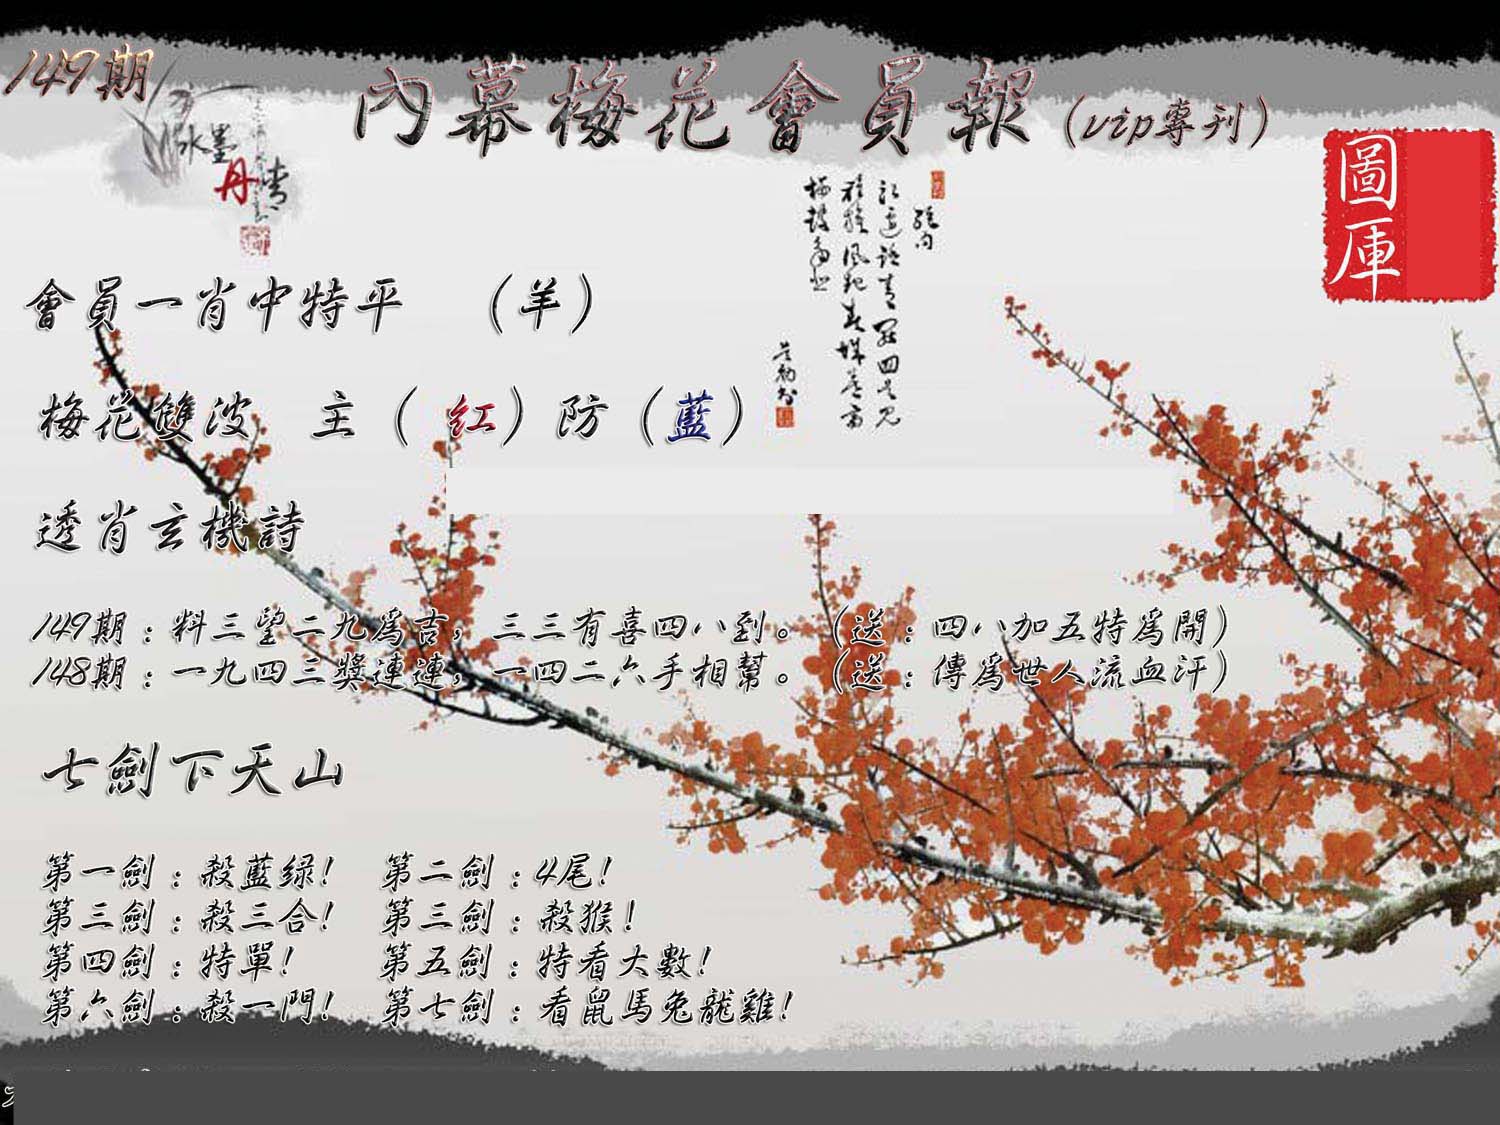 149期
內幕梅花會員報(vip專刊)
水墨
丹青
圖庫
會員一肖中特平 (羊)
梅花雙波 主(紅)防(藍)
透肖玄機詩
149期:料三望二九為吉,三三有喜四八到。(送:四八加五特為開)
148期:一九四三獎連連,一四二六手相幫。(送:傳為世人流血汗)
七劍下天山
第一劍:殺藍绿! 第二劍:4尾!
第三劍:殺三合! 第三劍:殺猴!
第四劍:特單! 第五劍:特看大數!
第六劍:殺一門! 第七劍:看鼠馬兔龍雞!